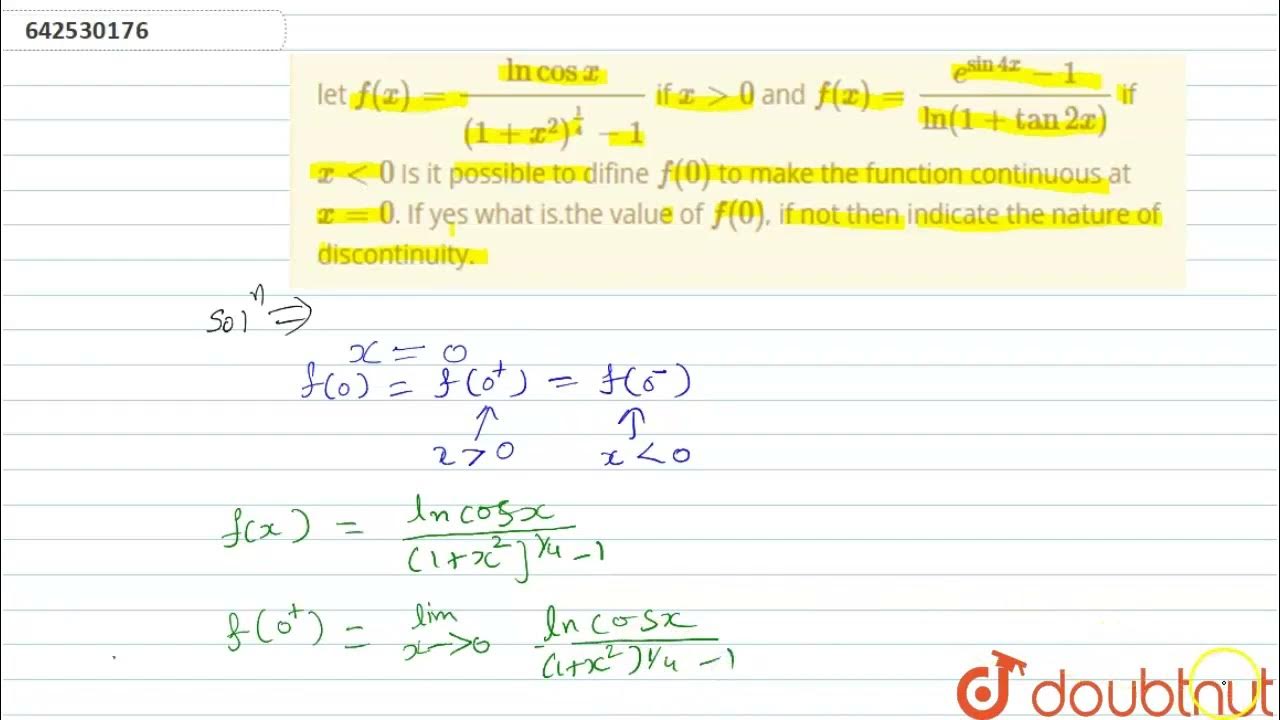 642530176
let f(x) = \frac{\ln \cos x}{(1 + x^2)^{\frac{1}{4}} - 1} if x > 0 and f(x) = \frac{e^{\sin 4x} - 1}{\ln(1 + \tan 2x)} if
x < 0 Is it possible to difine f(0) to make the function continuous at
x = 0. If yes what is.the value of f(0), if not then indicate the nature of
discontinuity.
Solⁿ ⇒
x = 0
f(0) = f(0⁺) = f(0⁻)
↑ ↑
x > 0 x < 0
f(x) = \frac{ln cos x}{(1+x^2]^{1/4} - 1}
f(0⁺) = lim_{x→0} \frac{ln cos x}{(1+x^2)^{1/4} - 1}
doubtnut